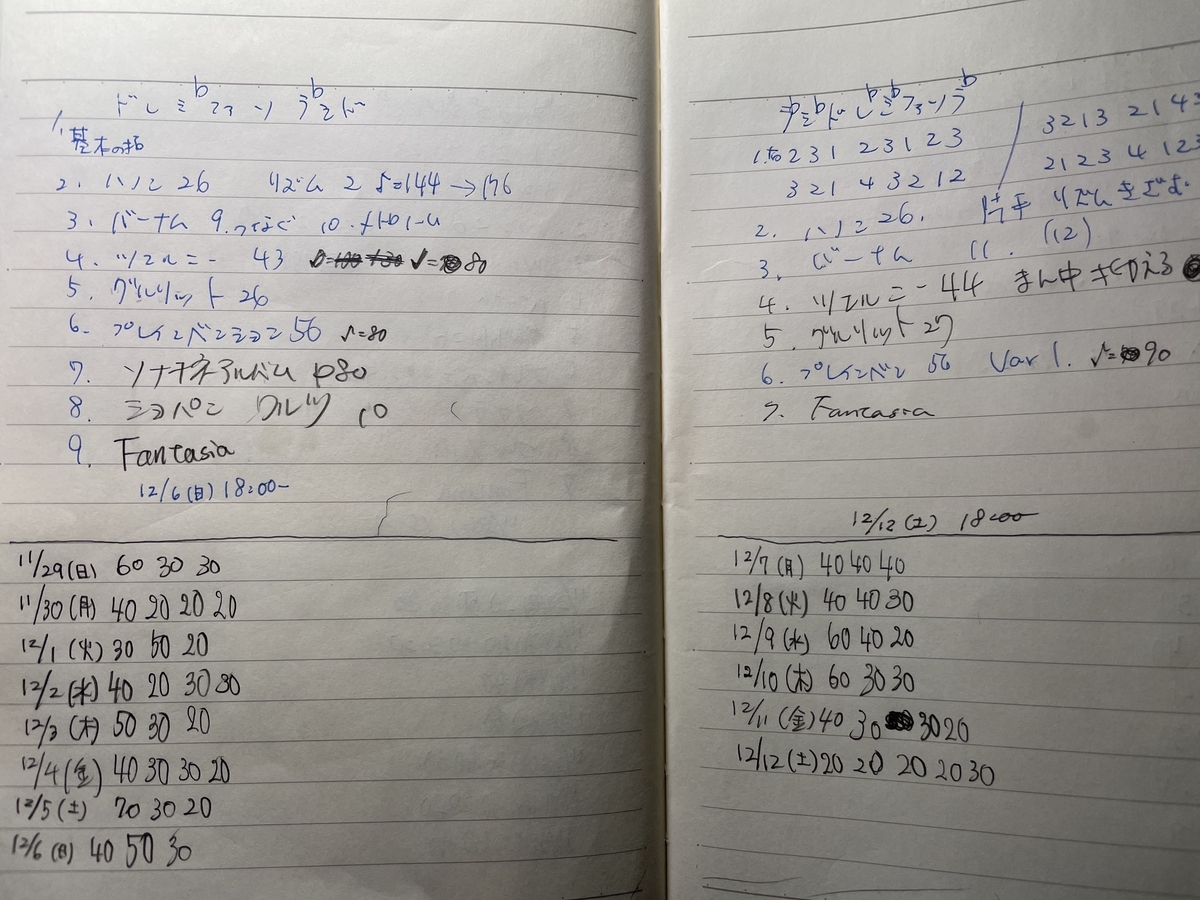 ドレミ♭ファソラ♭シド
1. 基本の指
2. ハノン 26 リズム 2 ♪=144→176
3. バーナム 9.つなぐ 10.メトローム
4. ツェルニー 43 ♪=80
5. グルリット 26
6. プレインベンション 56 ♪=80
7. ソナチネアルバム p80
8. ショパン ワルツ 10
9. Fantasia
12/6(日) 18:00-
11/29(日) 60 30 30
11/30(月) 40 20 20 20
12/1(火) 30 50 20
12/2(水) 40 20 30 30
12/3(木) 50 30 20
12/4(金) 40 30 30 20
12/5(土) 70 30 20
12/6(日) 40 50 30
ラ♭シ♭ドレ♭ミ♭ファソラ♭
1.右 2 3 1 2 3 1 2 3 / 3 2 1 3 2 1 4 3
3 2 1 4 3 2 1 2 2 1 2 3 4 1 2 3
2. ハノン 26. 片手 リズムきざむ
3. バーナム 11. (12)
4. ツェルニー 44 まん中 きりかえる
5. グルリット 27
6. プレインベン 56 Var 1. ♪=90
7. Fantasia
12/12(土) 18:00-
12/7(月) 40 40 40
12/8(火) 40 40 30
12/9(水) 60 40 20
12/10(木) 60 30 30
12/11(金) 40 30 30 20
12/12(土) 20 20 20 20 30